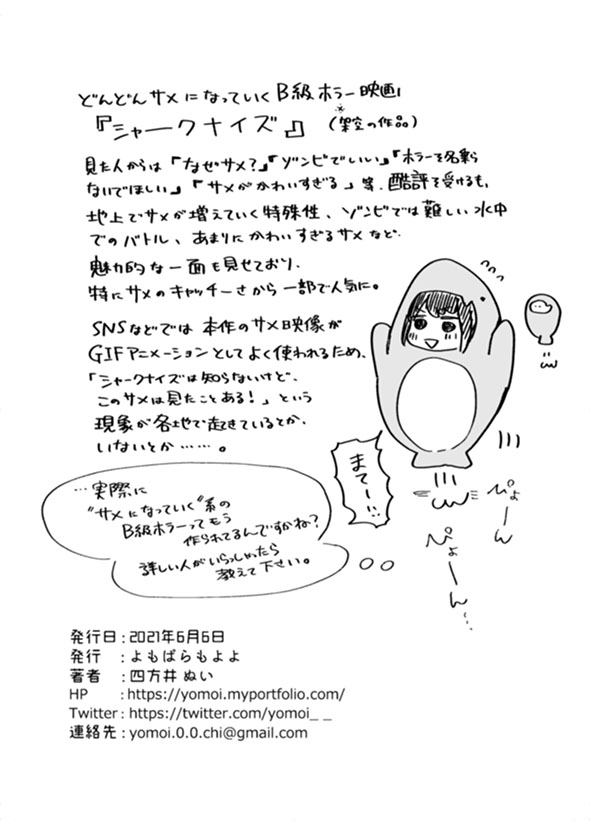 どんどんサメになっていくB級ホラー映画
『シャークナイズ』 (※架空の作品)
見た人からは「なぜサメ？」「ゾンビでいい」「ホラーを名乗ら
ないでほしい」「サメがかわいすぎる」等、酷評を受けるも、
地上でサメが増えていく特殊性、ゾンビでは難しい水中
でのバトル、あまりにかわいすぎるサメなど、
魅力的な一面も見せており、
特にサメのキャッチーさから一部で人気に。
SNSなどでは本作のサメ映像が
GIFアニメーションとしてよく使われるため、
「シャークナイズは知らないけど、
このサメは見たことある！」という
現象が各地で起きているとか、
いないとか……。
まてー!!
ぴょーん
ぴょーん…
…実際に
"サメになっていく"系の
B級ホラーってもう
作られてるんですかね？
詳しい人がいらっしゃったら
教えて下さい。
発行日：2021年6月6日
発行　：よもぱらもよよ
著者　：四方井 ぬい
HP　：https://yomoi.myportfolio.com/
Twitter：https://twitter.com/yomoi_ _
連絡先：yomoi.0.0.chi@gmail.com